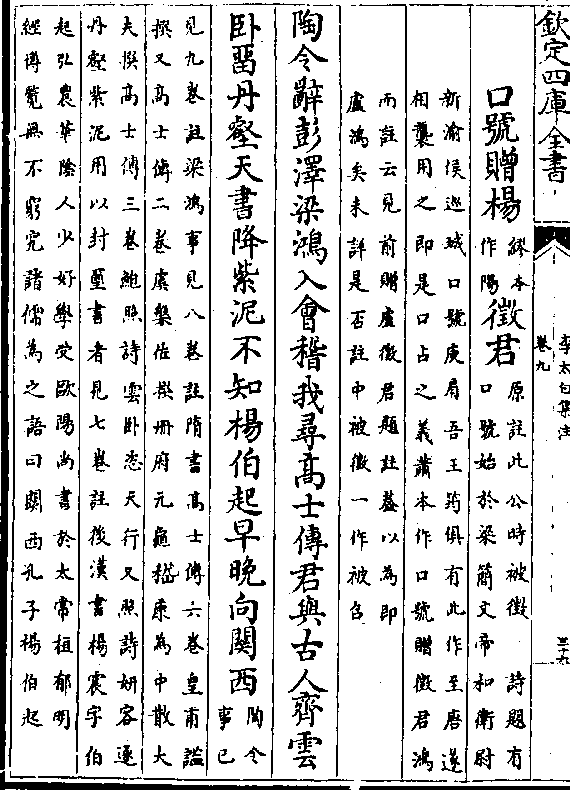 欽定四庫全書
李太白集注
卷九
三十九
口號贈楊繆本作陽徵君原註此公時被徵 詩題有口號始於梁簡文帝和衛尉
新渝侯巡城口號庾肩吾王筠俱有此作至唐遂
相襲用之即是口占之義蕭本作口號贈徵君鴻
而註云見前贈盧徵君題註蓋以為即
盧鴻矣未詳是否註中被徵一作被召
陶令辭彭澤梁鴻入會稽我尋高士傳君與古人齊雲
卧留丹壑天書降紫泥不知楊伯起早晚向關西陶令事已
見九卷註梁鴻事見八卷註隋書高士傳六卷皇甫謐
撰又高士傳二卷虞槃佐撰冊府元龜嵇康為中散大
夫撰高士傳三卷鮑照詩雲卧恣天行又照詩妍容逐
丹壑紫泥用以封璽書者見七卷註後漢書楊震字伯
起弘農華陰人少好學受歐陽尚書於太常桓郁明
經博覽無不窮究諸儒為之語曰關西孔子楊伯起